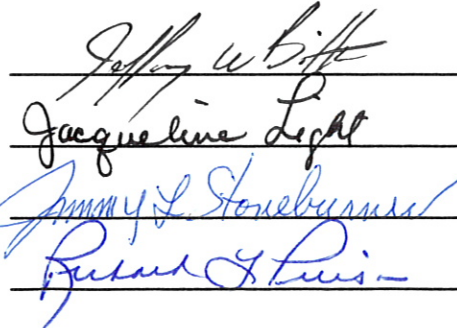 Jeffrey W
Jacqueline Light
Jimmy L. Stoneburner
Richard L